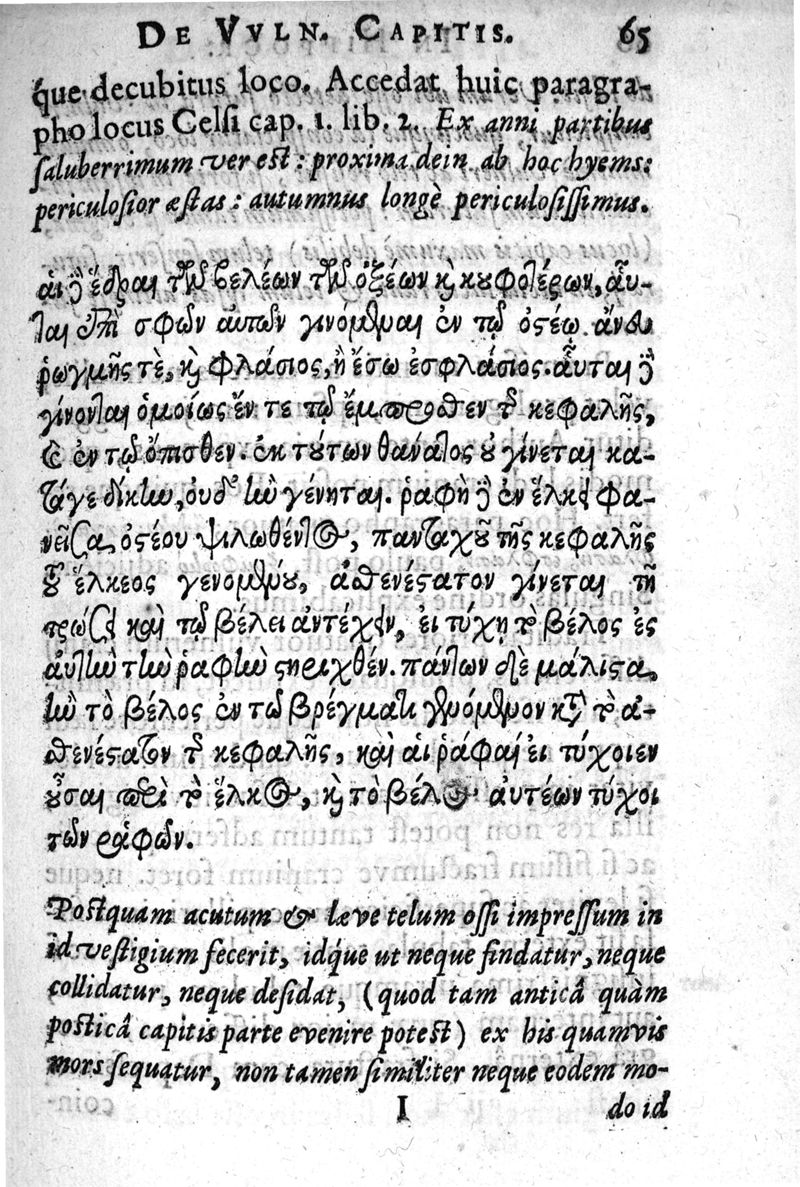 DE VVLN. CAPITIS. 65
que decubitus loco. Accedat huic paragra-
pho locus Celsi cap. 1. lib. 2. Ex anni partibus
saluberrimum ver est: proxima dein ab hoc hyems:
periculosior æstas: autumnus longè periculosissimus.
αἱ δὲ ἕδραι τῶν βελέων τῶν ὀξέων καὶ κουφοτέρων, αὗ-
ται ἐπὶ σφῶν αὐτῶν γινόμεναι ἐν τῷ ὀστέῳ ἄνευ
ῥωγμῆς τὲ, καὶ φλάσιος, ἢ ἔσω ἐσφλάσιος. αὗται δὲ
γίνονται ὁμοίως ἔν τε τῷ ἔμπροσθεν τῆς κεφαλῆς,
καὶ ἐν τῷ ὄπισθεν. ἐκ τούτων θάνατος οὐ γίνεται κα-
τάγε δίκην, οὐδ' ἢν γένηται. ῥαφὴ δὲ ἐν ἕλκει φα-
νεῖσα, ὀστέου ψιλωθέντος, πανταχοῦ τῆς κεφαλῆς
τοῦ ἕλκεος γενομένου, ἀσθενέστατον γίνεται τῇ
τρώσει καὶ τῷ βέλει ἀντέχειν, εἰ τύχῃ τὸ βέλος ἐς
αὐτὴν τὴν ῥαφὴν στηριχθέν. πάντων δὲ μάλιστα,
ἢν τὸ βέλος ἐν τῷ βρέγματι γενόμενον κατὰ τὸ ἀ-
σθενέστατον τῆς κεφαλῆς, καὶ αἱ ῥάφαί εἰ τύχοιεν
οὖσαι περὶ τὸ ἕλκος, καὶ τὸ βέλος αὐτέων τύχοι
τῶν ῥαφῶν.
Postquam acutum & læve telum ossi impressum in
id vestigium fecerit, idque ut neque findatur, neque
collidatur, neque desidat, (quod tam anticâ quàm
posticâ capitis parte evenire potest) ex his quamvis
mors sequatur, non tamen similiter neque eodem mo-
I do id